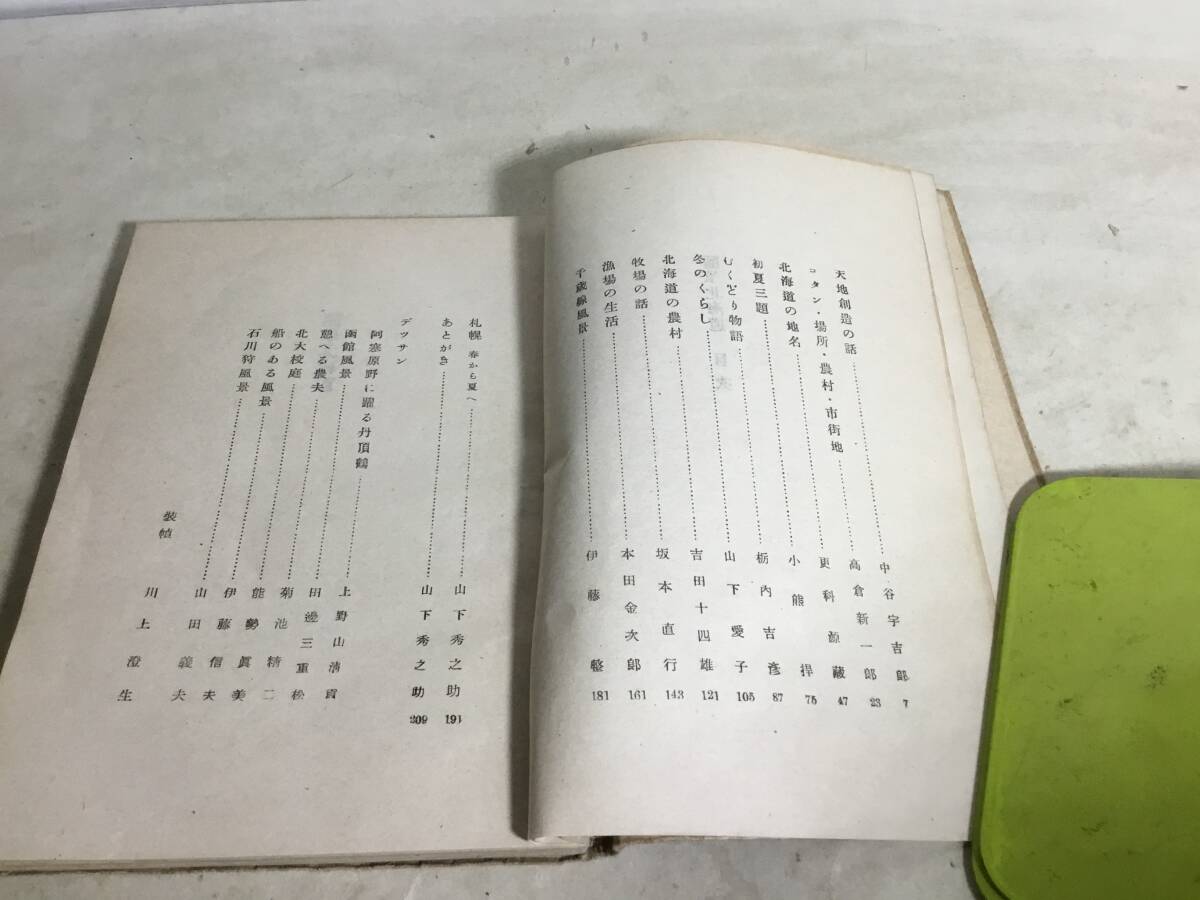 天地創造の話……中谷宇吉郎 7
コタン・場所・農村・市街地……高倉新一郎 23
北海道の地名……更科源藏 47
初夏三題……小熊捍 75
むくどり物語……栃内吉彦 87
冬のくらし……山下愛子 105
北海道の農村……吉田十四雄 121
牧場の話……坂本直行 143
漁場の生活……本田金次郎 161
千歳線風景……伊藤整 181
札幌 春から夏へ……山下秀之助 191
あとがき……山下秀之助 209
デッサン
阿寒原野に躍る丹頂鶴……上野山淸貢
函館風景……田邊三重松
憩へる農夫……菊池精二
北大校庭……能勢眞美
船のある風景……伊藤信夫
石川狩風景……山田義夫
裝幀 川上澄生